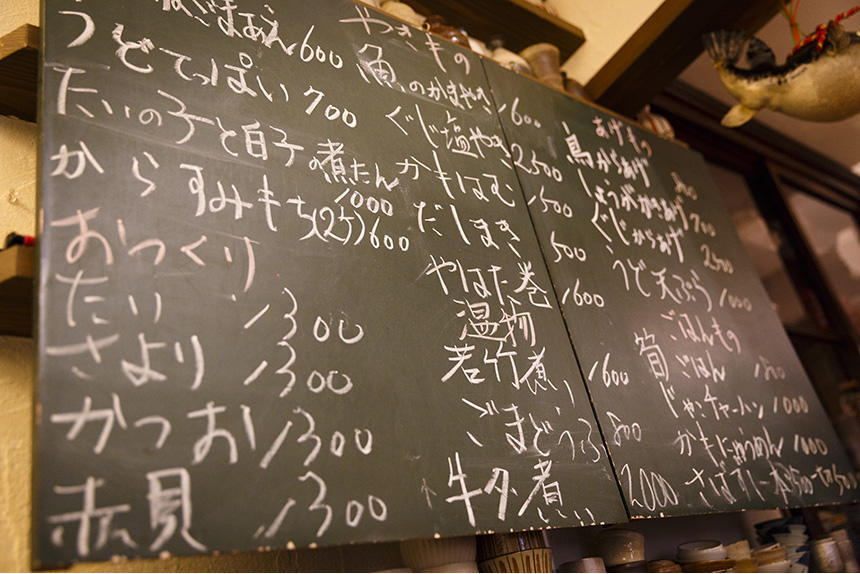 ごまあえ 600
うどてっぱい 700
たいの子と白子の煮たん 1000
からすみもち(2ケ) 600
おつくり
たい 1300
さより 1300
かつお 1300
赤貝 1300
やきもの
魚のかまやき 1600
ぐじ塩やき 2500
かもはむ 1500
だしまき 500
やはた巻 1600
温物
若竹煮 1600
ごまどうふ 800
牛タン煮 2000
あげもの
鳥からあげ 800
しょうがかきあげ 700
ぐじからあげ 2500
うど天ぷら 1000
ごはんもの
筍ごはん
じゃこチャーハン 1000
かもにゅうめん 1000
さばずし一本